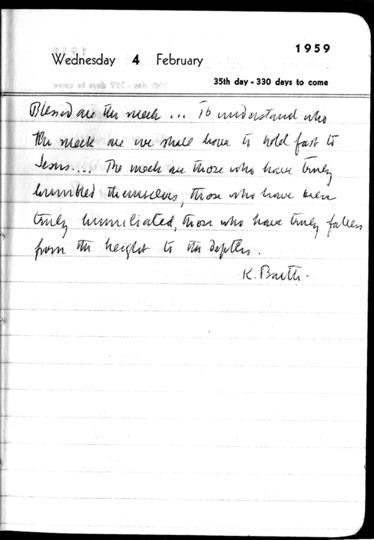 1959
Wednesday 4 February
35th day - 330 days to come
Blessed are the meek ... To understand who
the meek are we shall have to hold fast to
Jesus.... The meek are those who have truly
humbled themselves, those who have been
truly humiliated, those who have truly fallen
from the height to the depths.
K. Barth.